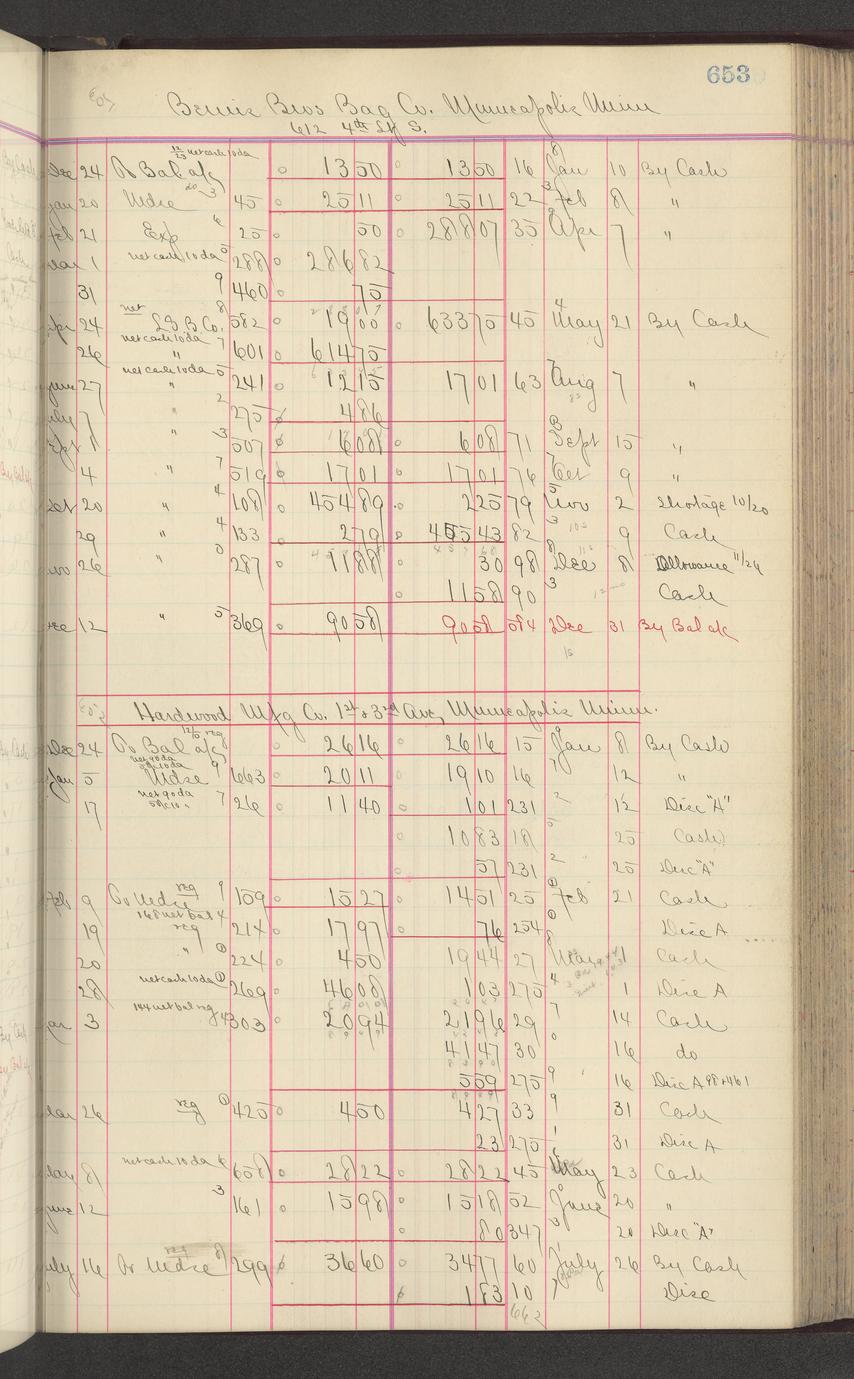 653
Bemis Bros Bag Co. Minneapolis Minn
612 4th St S.
12/23 net cash 10 da
Dec 24 To Bal a/c 13 50 13 50 16 Jan 10 By Cash
Jan 20 Mdse 45 25 11 25 11 22 Feb 8 "
Feb 21 Exp 25 50 288 07 35 Apr 7 "
Mar 1 net cash 10 da 288 286 82
31 460 75
Apr 24 net L B B Co. 582 19 00 633 75 45 May 21 By Cash
26 net cash 10 da " 601 614 75
June 27 net cash 10 da " 241 12 15 17 01 63 Aug 7 "
July 7 " 275 4 86
Sept 1 " 507 6 08 6 08 71 Sept 15 "
4 " 519 17 01 17 01 76 Oct 9 "
Oct 20 " 108 454 89 2 25 79 Nov 2 Shortage 10/20
29 " 133 2 79 455 43 82 9 Cash
Nov 26 " 287 11 88 30 98 Dec 8 Allowance 11/24
11 58 90 Cash
Dec 12 " 369 90 58 90 58 584 Dec 31 By Bal a/c
Hardwood Mfg Co. 1st & 3rd Ave, Minneapolis Minn.
Dec 24 To Bal a/c 26 16 26 16 15 Jan 8 By Cash
Jan 5 Mdse 663 20 11 19 10 16 12 "
17 26 11 40 1 01 231 12 Disc "A"
10 83 18 25 Cash
57 231 25 Disc "A"
Feb 9 To Mdse reg 159 15 27 14 51 25 Feb 21 Cash
19 reg 214 17 97 76 254 Disc A
20 " 224 4 50 19 44 27 Mar 1 Cash
28 net cash 10 da 269 46 08 1 03 275 1 Disc A
Mar 3 303 20 94 21 96 29 14 Cash
41 47 30 16 do
5 59 275 16 Disc A 98+461
Mar 26 reg 425 4 50 4 27 33 31 Cash
23 275 31 Disc A
May 8 net cash 10 da 658 28 22 28 22 45 May 23 Cash
June 12 161 15 98 15 18 52 June 20 "
80 347 20 Disc "A"
July 16 To Mdse reg 299 36 60 34 77 60 July 26 By Cash
1 83 10 Disc
662